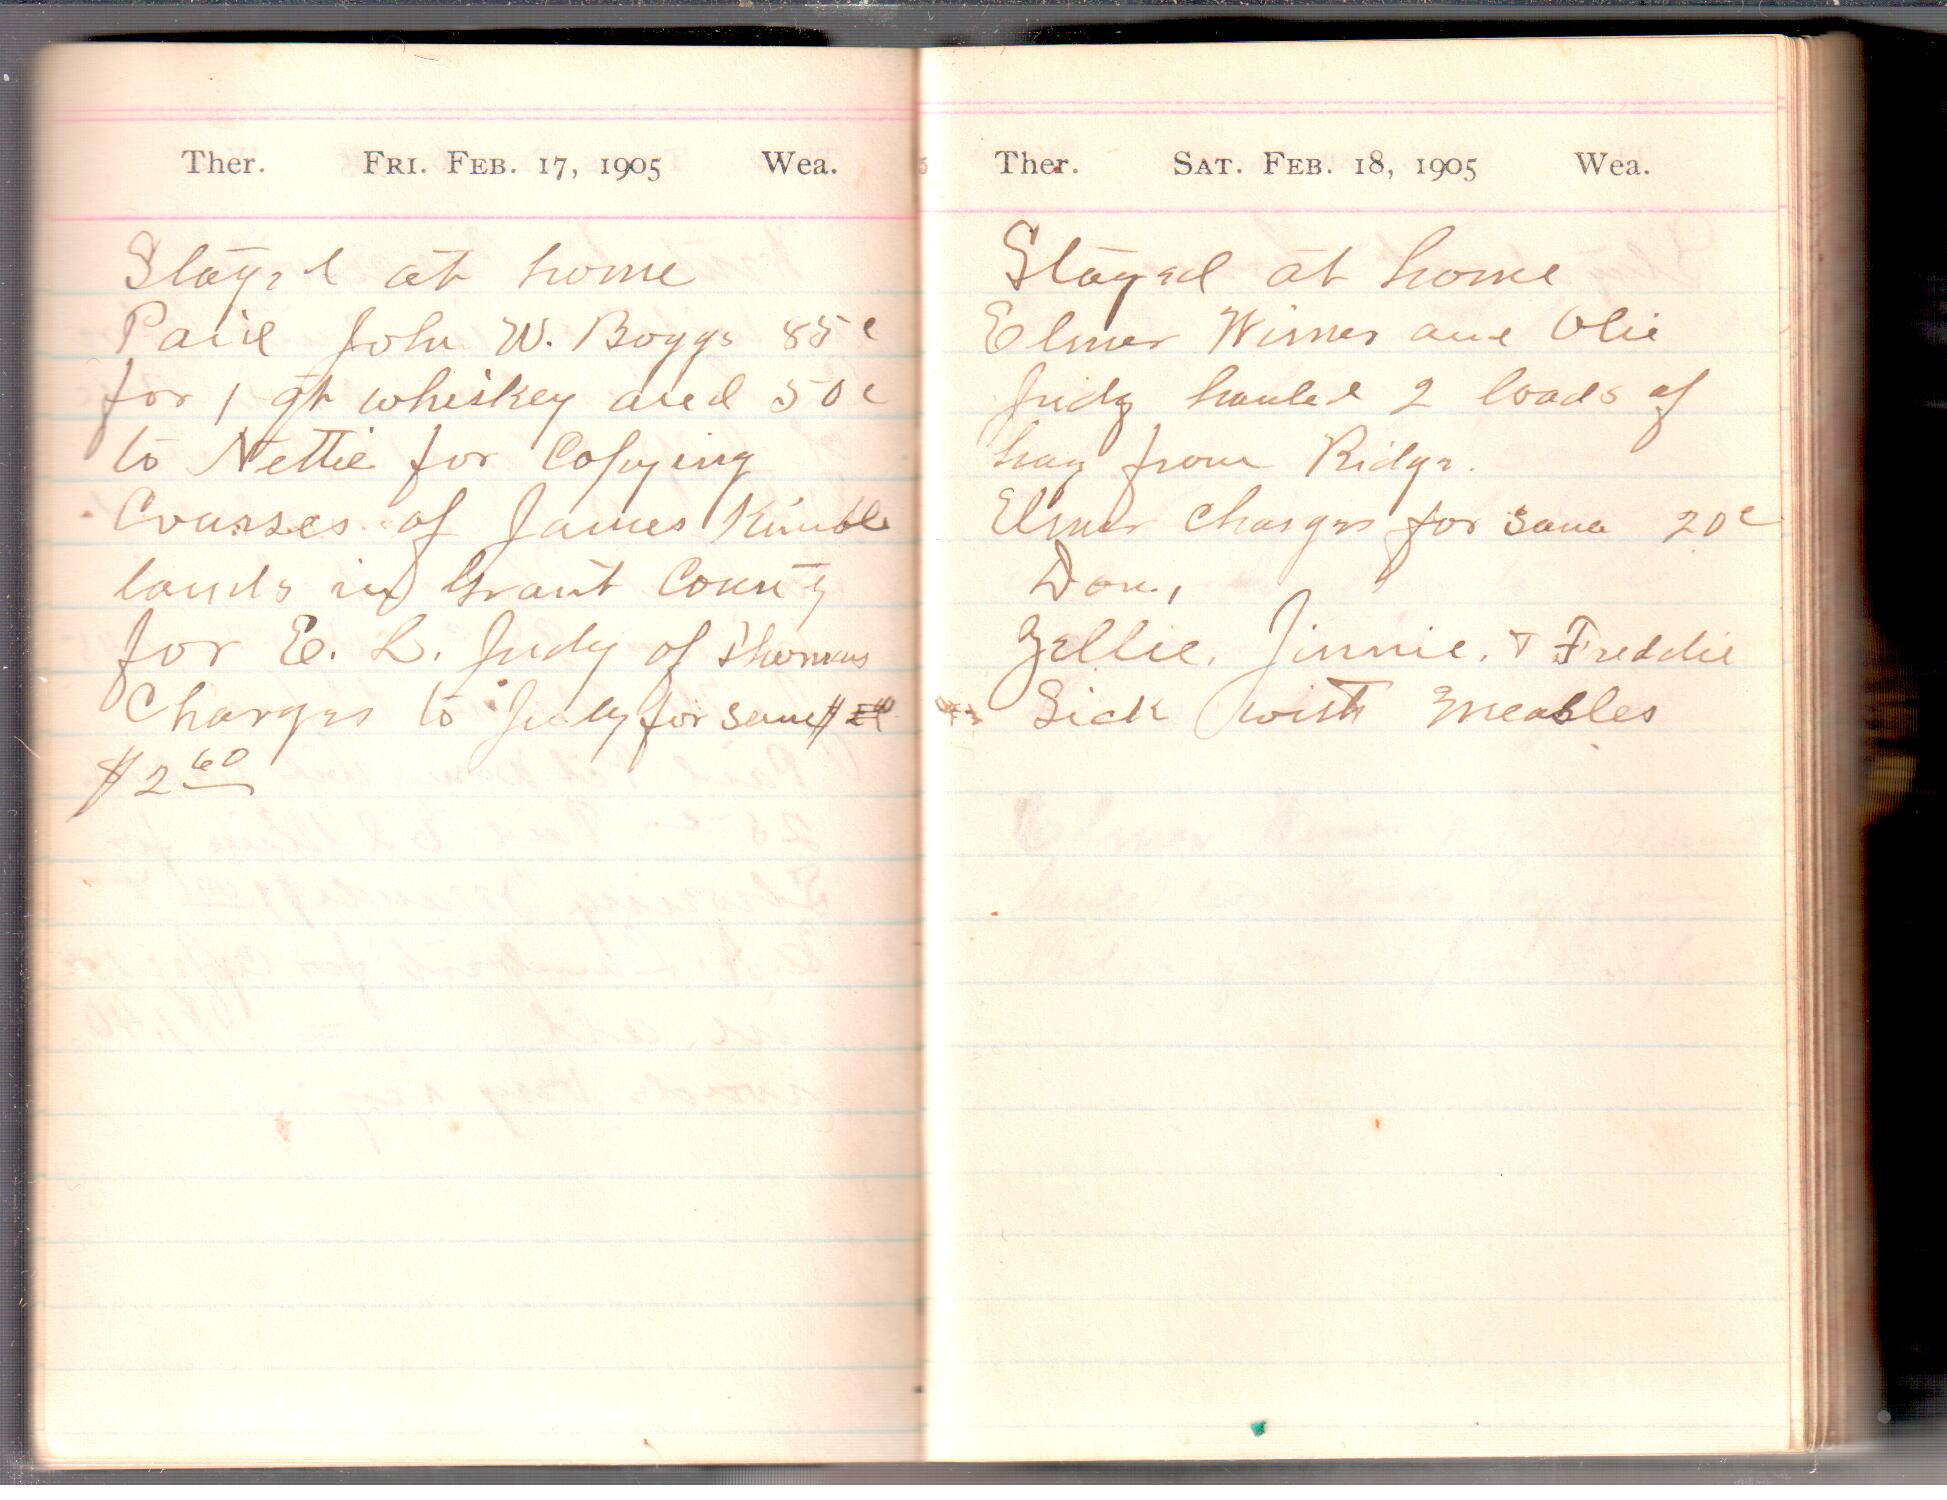 Ther. Fri. Feb. 17, 1905 Wea.
Stayed at home
Paid John W. Boggs 85c
for 1 qt whiskey and 50c
to Nettie for Copying
Courses of James Kimble
lands in Grant County
for E. L. Judy of Thomas
Charges to Judy for same $
$2 60
Ther. Sat. Feb. 18, 1905 Wea.
Stayed at home
Elmer Wimer and Olie
Judy hauled 2 loads of
hay from Ridge.
Elmer Charges for same 20c
Don,
Zellie, Jinnie, & Freddie
Sick with Measles